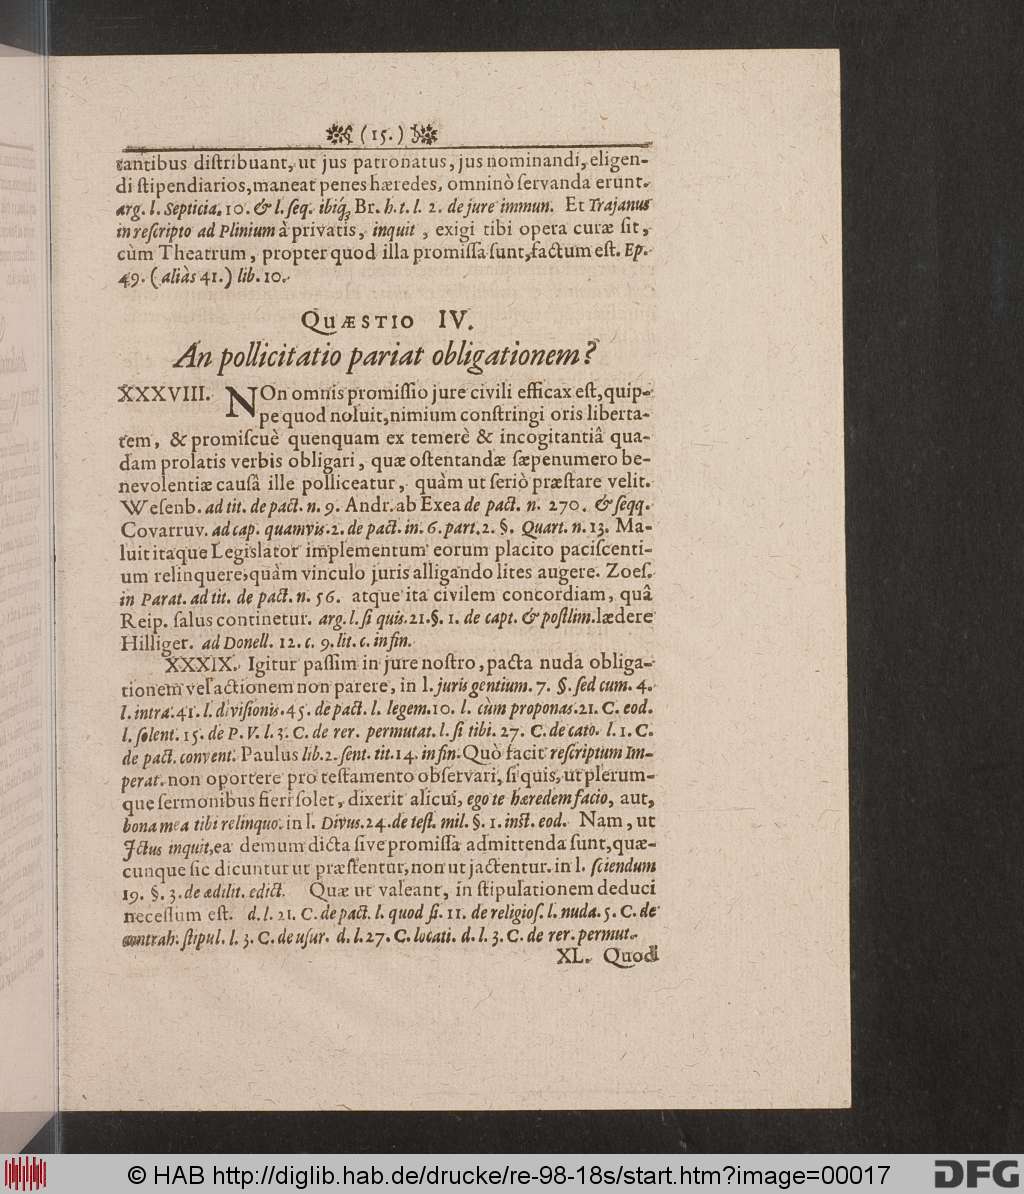 (15.)
tantibus distribuant, ut jus patronatus, jus nominandi, eligen-
di stipendiarios, maneat penes hæredes, omninò servanda erunt.
arg. l. Septicia. 10. & l. seq. ibiq́; Br. h. t. l. 2. de jure immun. Et Trajanus
in rescripto ad Plinium à privatis, inquit, exigi tibi opera curæ sit,
cùm Theatrum, propter quod illa promissa sunt, factum est. Ep.
49. (aliàs 41.) lib. 10.
QUÆSTIO IV.
An pollicitatio pariat obligationem?
XXXVIII. NOn omnis promissio jure civili efficax est, quip-
pe quod noluit, nimium constringi oris liberta-
tem, & promiscuè quenquam ex temerè & incogitantiâ qua-
dam prolatis verbis obligari, quæ ostentandæ sæpenumero be-
nevolentiæ causâ ille polliceatur, quàm ut seriò præstare velit.
Wesenb. ad tit. de pact. n. 9. Andr. ab Exea de pact. n. 270. & seqq.
Covarruv. ad cap. quamvis. 2. de pact. in. 6. part. 2. §. Quart. n. 13. Ma-
luit itaque Legislator implementum eorum placito paciscenti-
um relinquere, quàm vinculo juris alligando lites augere. Zoes.
in Parat. ad tit. de pact. n. 56. atque ita civilem concordiam, quâ
Reip. salus continetur. arg. l. si quis. 21. §. 1. de capt. & postlim. lædere
Hilliger. ad Donell. 12. c. 9. lit. c. in fin.
XXXIX. Igitur passim in jure nostro, pacta nuda obliga-
tionem vel actionem non parere, in l. juris gentium. 7. §. sed cum. 4.
l. intra. 41. l. divisionis. 45. de pact. l. legem. 10. l. cùm proponas. 21. C. eod.
l. solent. 15. de P. V. l. 3. C. de rer. permutat. l. si tibi. 27. C. de cato. l. 1. C.
de pact. convent. Paulus lib. 2. sent. tit. 14. in fin. Quò facit rescriptum Im-
perat. non oportere pro testamento observari, si quis, ut plerum-
que sermonibus fieri solet, dixerit alicui, ego te hæredem facio, aut,
bona mea tibi relinquo. in l. Divus. 24. de test. mil. §. 1. inst. eod. Nam, ut
Jctus inquit, ea demum dicta sive promissa admittenda sunt, quæ-
cunque sic dicuntur ut præstentur, non ut jactentur. in l. sciendum
19. §. 3. de ædilit. edict. Quæ ut valeant, in stipulationem deduci
necessum est. d. l. 21. C. de pact. l. quod si. 11. de religios. l. nuda. 5. C. de
contrah. stipul. l. 3. C. de usur. d. l. 27. C. locati. d. l. 3. C. de rer. permut.
XL. Quod
© HAB http://diglib.hab.de/drucke/re-98-18s/start.htm?image=00017
DFG